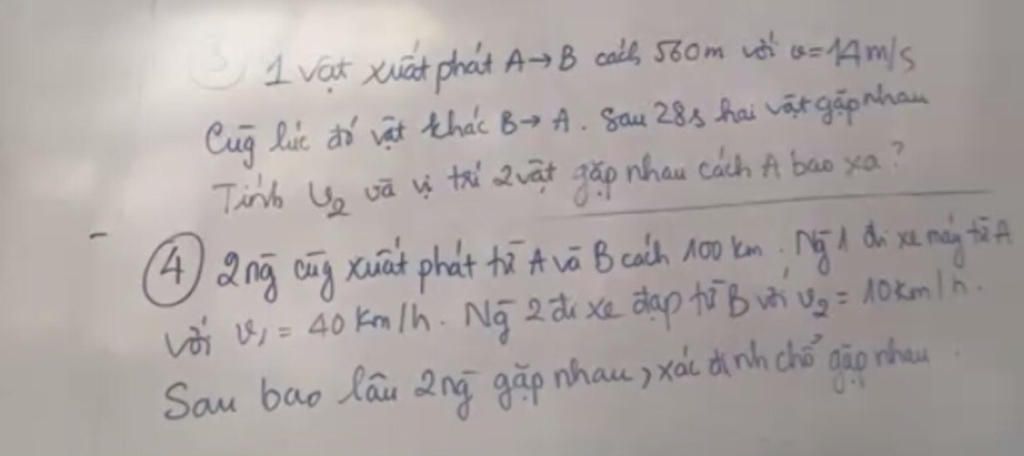 ③ 1 vật xuất phát A→B cách 560m với v=14m/s
Cùg lúc đó vật khác B→A. Sau 28s hai vật gặp nhau
Tính v₂ và vị trí 2 vật gặp nhau cách A bao xa?
④ 2 ng̃ cùg xuất phát từ A và B cách 100 km. Ng̃ 1 đi xe máy từ A
với v₁ = 40 Km/h. Ng̃ 2 đi xe đạp từ B với v₂ = 10 Km/h.
Sau bao lâu 2 ng̃ gặp nhau, xác định chỗ gặp nhau.